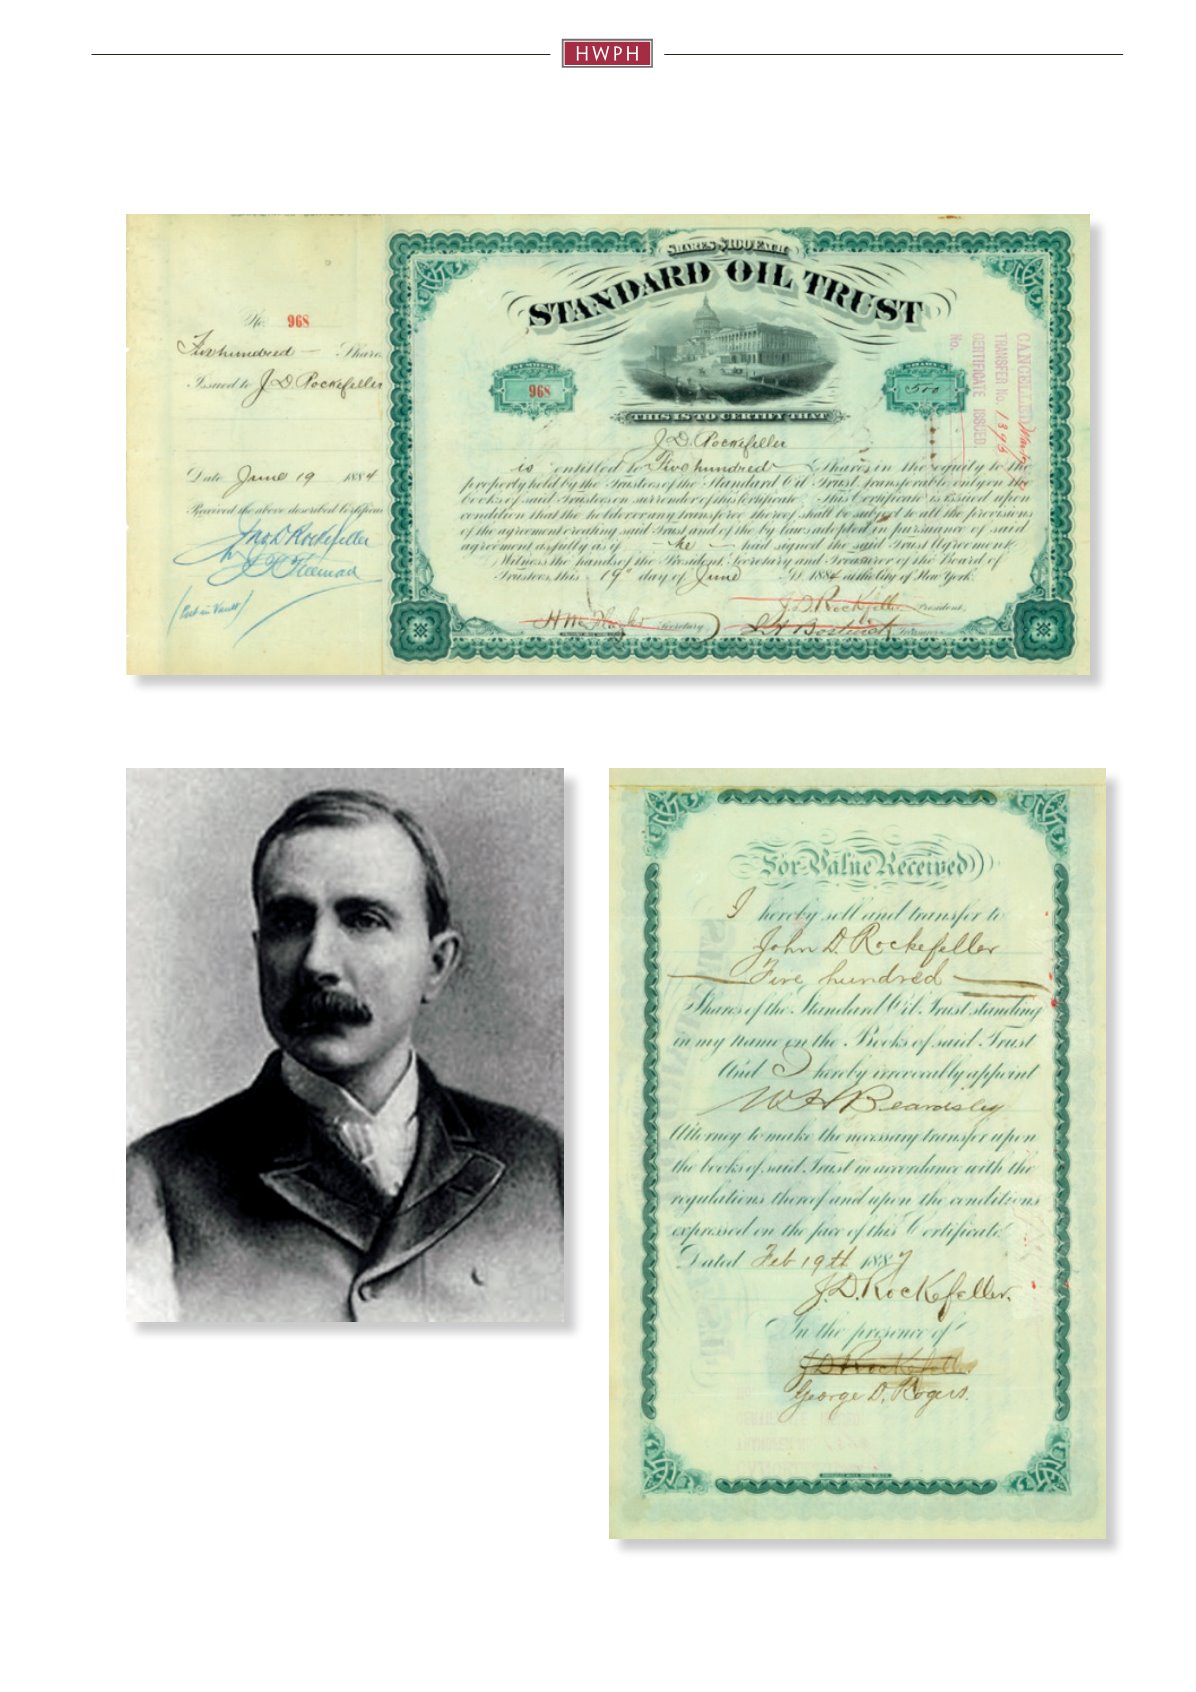 HWPH
No. 968
Five hundred — Shares
Issued to J. D. Rockefeller
Date June 19 1884
Received the above described Certificate
Jno D Rockefeller
(Cert in Vault)
SHARES $100 EACH
STANDARD OIL TRUST
NUMBER
968
SHARES
500
CANCELLED
TRANSFER No. 1395
CERTIFICATE ISSUED.
No.
THIS IS TO CERTIFY THAT
J. D. Rockefeller
is entitled to Five hundred Shares in the equity to the
property held by the Trustees of the Standard Oil Trust, transferable only on the
books of said Trustees on surrender of this Certificate. This Certificate is issued upon
condition that the holder or any transferee thereof shall be subject to all the provisions
of the agreement creating said Trust and of the by-laws adopted in pursuance of said
agreement as fully as if he had signed the said Trust Agreement.
Witness the hands of the President, Secretary and Treasurer of the Board of
Trustees, this 19th day of June A.D. 1884 at the City of New York.
J. D. Rockefeller President,
Secretary
Bostwick Treasurer
For Value Received
I hereby sell and transfer to
John D. Rockefeller
Five hundred
Shares of the Standard Oil Trust standing
in my name on the Books of said Trust
And I hereby irrevocably appoint
W H Beardsley
Attorney to make the necessary transfer upon
the books of said Trust in accordance with the
regulations thereof and upon the conditions
expressed on the face of this Certificate.
Dated Feb 19th 1887
J. D. Rockefeller.
In the presence of
J D Rockefeller
George D. Rogers.